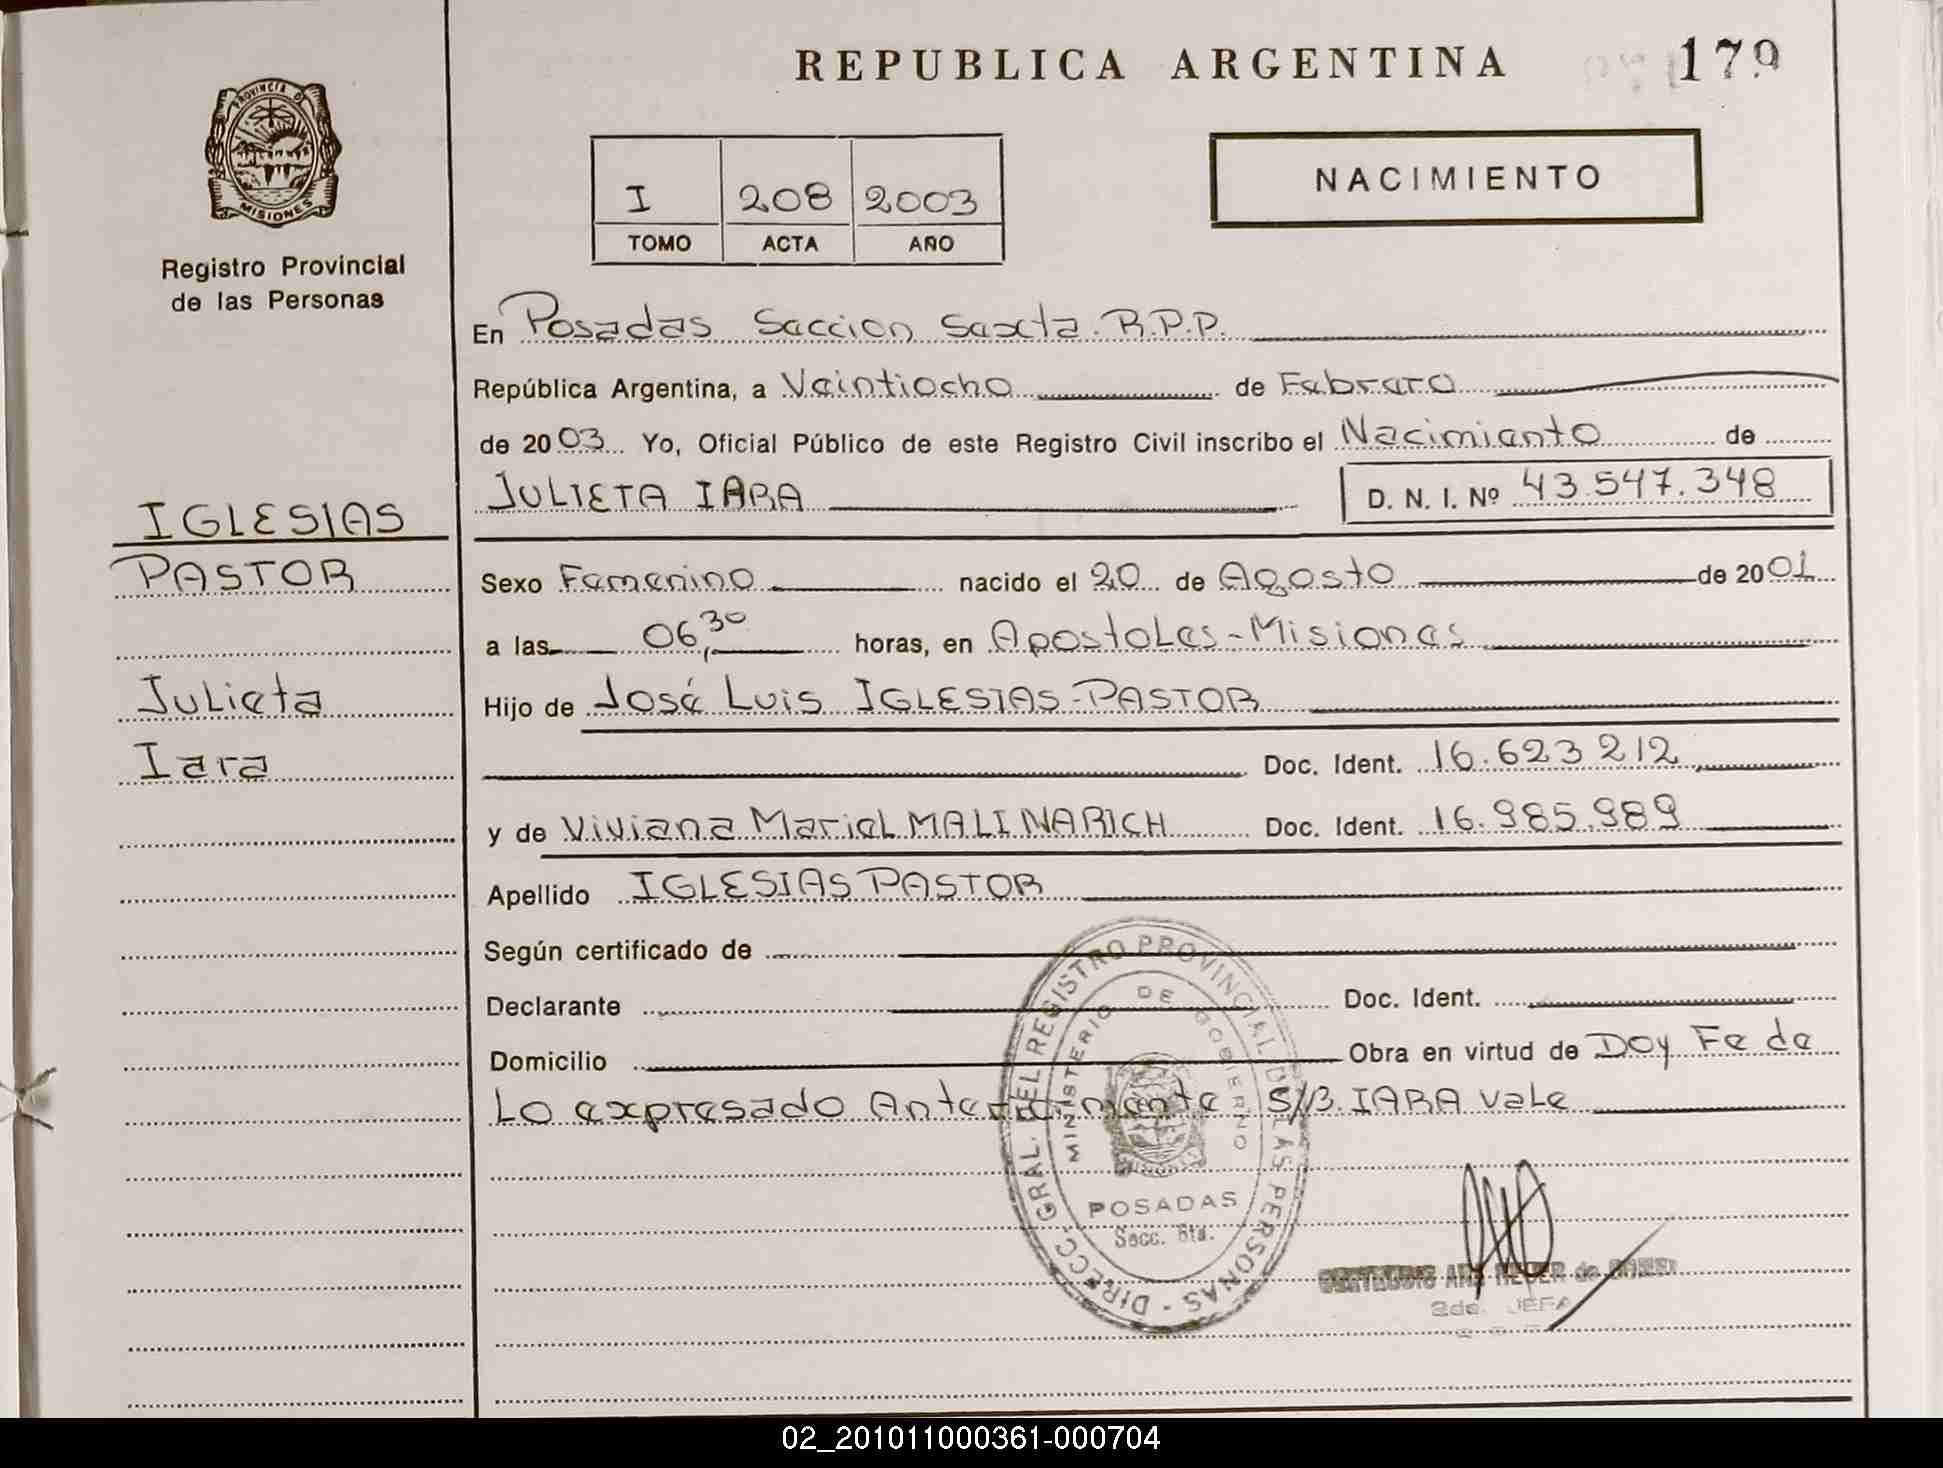 REPUBLICA ARGENTINA 179
PROVINCIA DE
MISIONES
Registro Provincial
de las Personas
I 208 2003
TOMO ACTA AÑO
NACIMIENTO
En Posadas Seccion Sexta. R.P.P.
República Argentina, a Veintiocho de Febrero
de 2003 Yo, Oficial Público de este Registro Civil inscribo el Nacimiento de
JULIETA IARA D. N. I. Nº 43.547.348
IGLESIAS
PASTOR
Julieta
Iara
Sexo Femenino nacido el 20 de Agosto de 2001
a las 06,30 horas, en Apostoles-Misiones
Hijo de José Luis IGLESIAS-PASTOR
Doc. Ident. 16.623.212
y de Viviana Mariel MALINARICH Doc. Ident. 16.985.989
Apellido IGLESIAS PASTOR
Según certificado de
Declarante Doc. Ident.
Domicilio Obra en virtud de Doy Fe de
Lo expresado Anteriormente S/B. IARA Vale
DIRECC. GRAL. DEL REGISTRO PROVINCIAL DE LAS PERSONAS
MINISTERIO DE GOBIERNO
POSADAS
Secc. 6ta.
ANA de
2da. JEFA
02_201011000361-000704